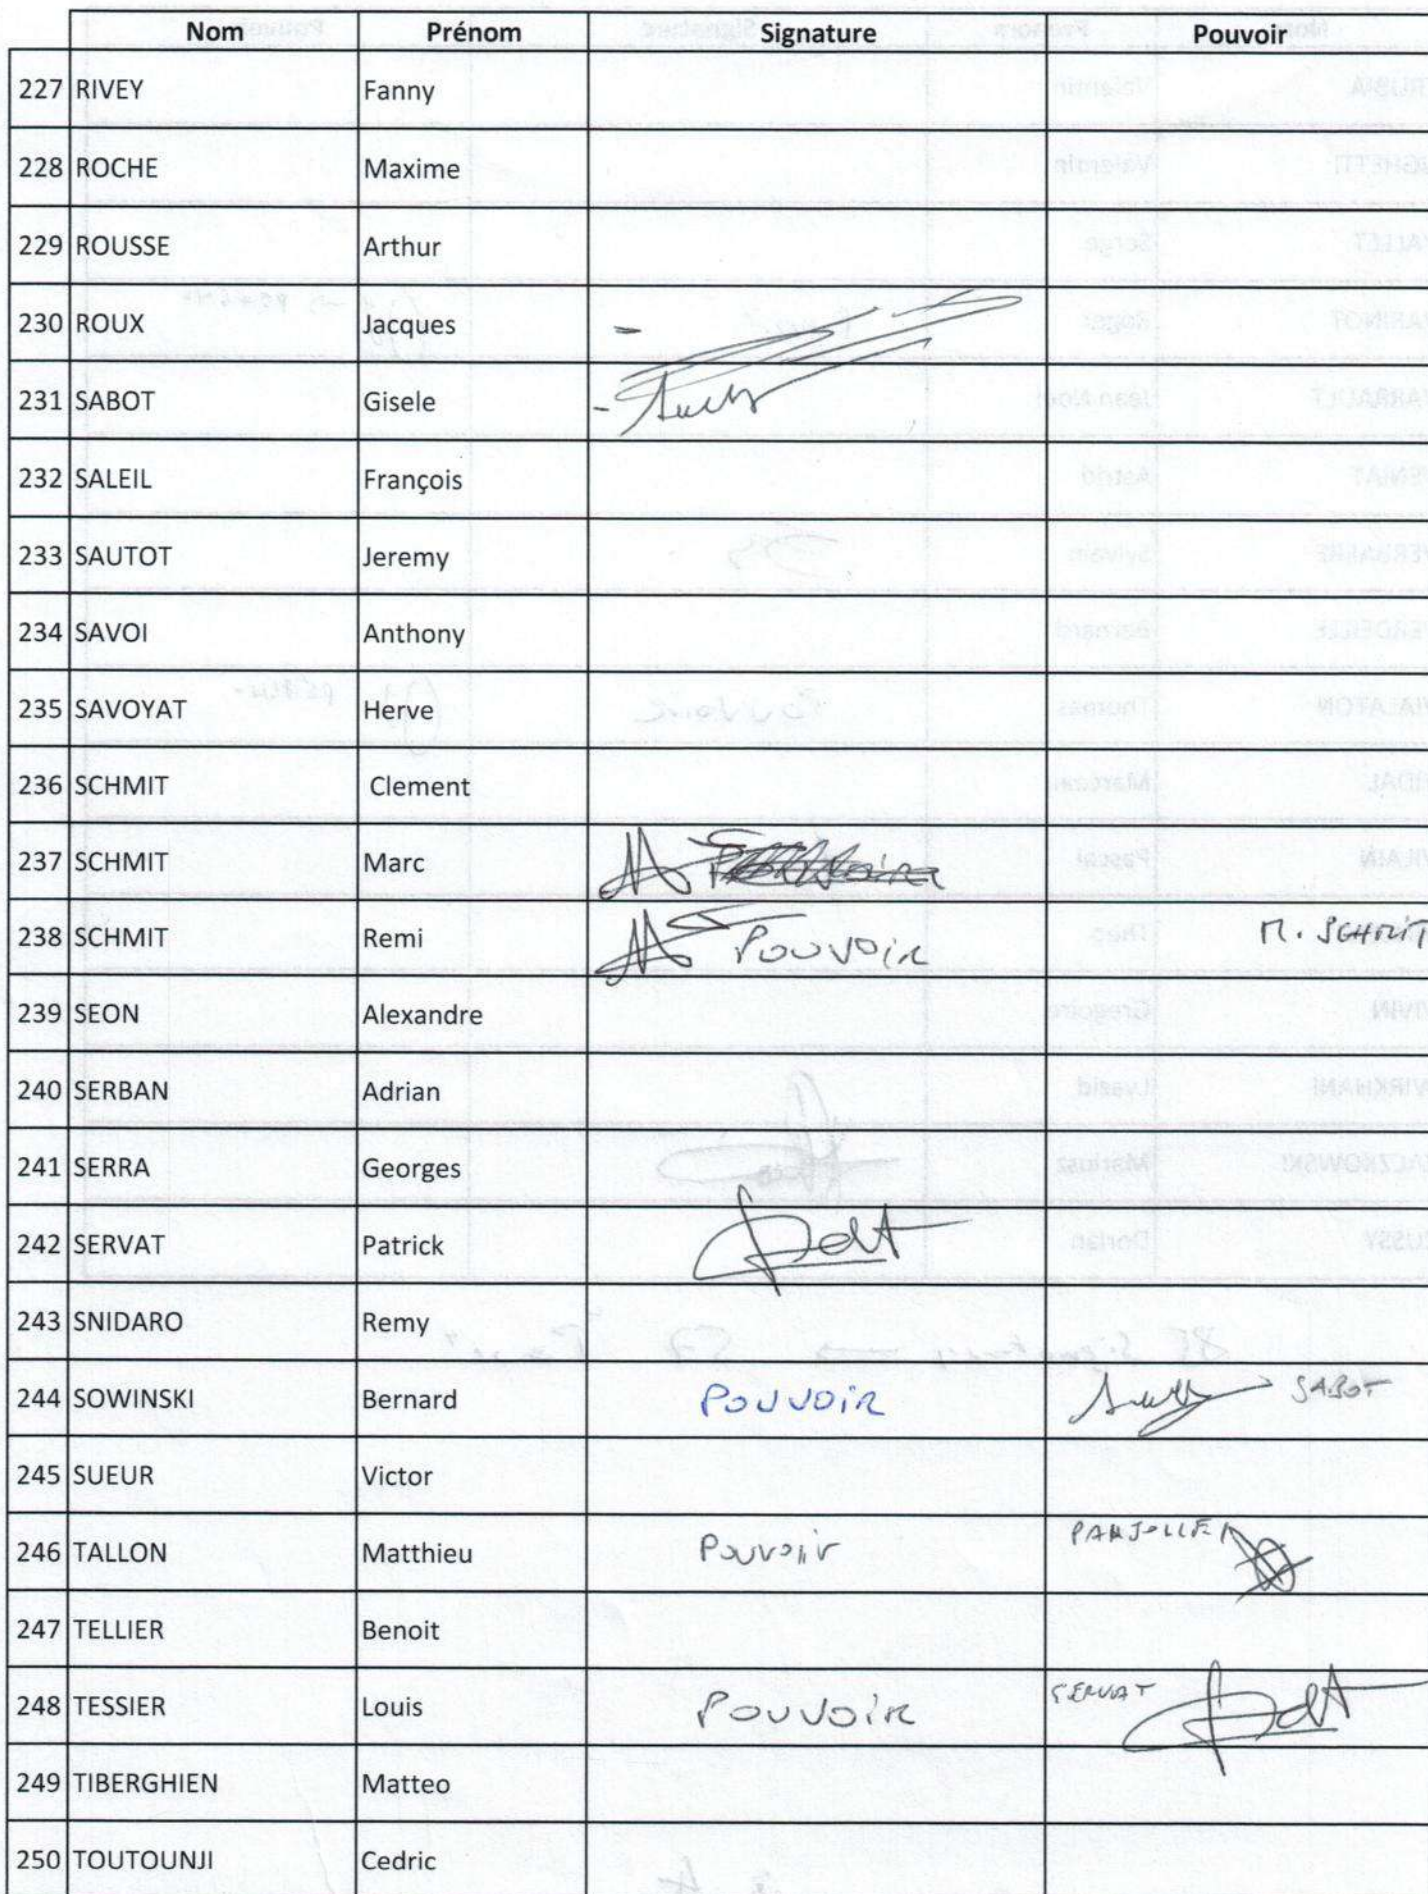 Nom Prénom Signature Pouvoir
227 RIVEY Fanny
228 ROCHE Maxime
229 ROUSSE Arthur
230 ROUX Jacques
231 SABOT Gisele
232 SALEIL François
233 SAUTOT Jeremy
234 SAVOI Anthony
235 SAVOYAT Herve
236 SCHMIT Clement
237 SCHMIT Marc
238 SCHMIT Remi POUVOIR M. SCHMIT
239 SEON Alexandre
240 SERBAN Adrian
241 SERRA Georges
242 SERVAT Patrick
243 SNIDARO Remy
244 SOWINSKI Bernard POUVOIR SABOT
245 SUEUR Victor
246 TALLON Matthieu Pouvoir
247 TELLIER Benoit
248 TESSIER Louis POUVOIR SERVAT
249 TIBERGHIEN Matteo
250 TOUTOUNJI Cedric